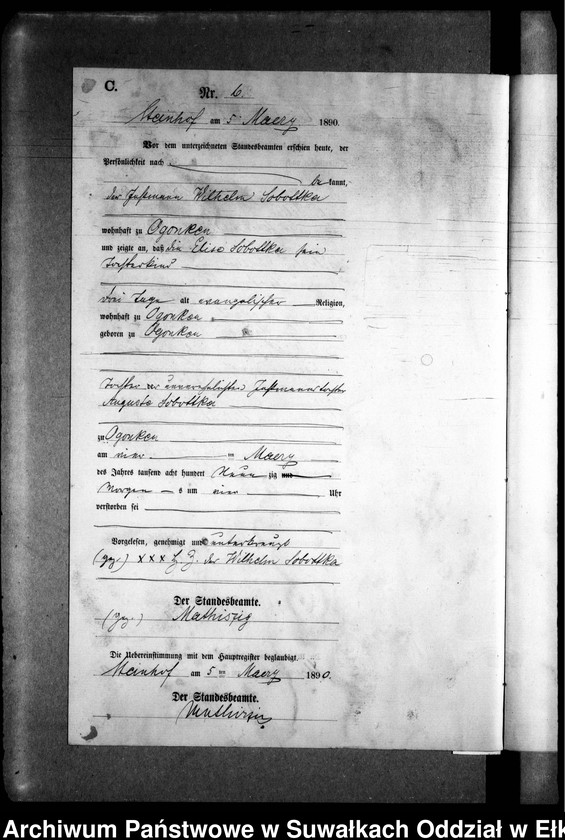 C.
Nr. 6
Steinhof am 5 Maerz 1890.
Vor dem unterzeichneten Standesbeamten erschien heute, der
Persönlichkeit nach
be kannt,
der Instmann Wilhelm Sobottka
wohnhaft zu Ogonken
und zeigte an, daß die Elise Sobottka sein
Tochterkind
drei Tage alt evangelischer Religion,
wohnhaft zu Ogonken
geboren zu Ogonken
Tochter der unverehelichten Instmannstochter
Auguste Sobottka
zu Ogonken
am vier ten Maerz
des Jahres tausend acht hundert Neun zig und
Morgen s um vier Uhr
verstorben sei
Vorgelesen, genehmigt und unterkreuzt
(gez.) x x x H. Z. des Wilhelm Sobottka
Der Standesbeamte.
(gez.) Mathiszig
Die Uebereinstimmung mit dem Hauptregister beglaubigt.
Steinhof am 5 ten Maerz 1890.
Der Standesbeamte.
Mathiszig
Archiwum Państwowe w Suwałkach Oddział w Ełk